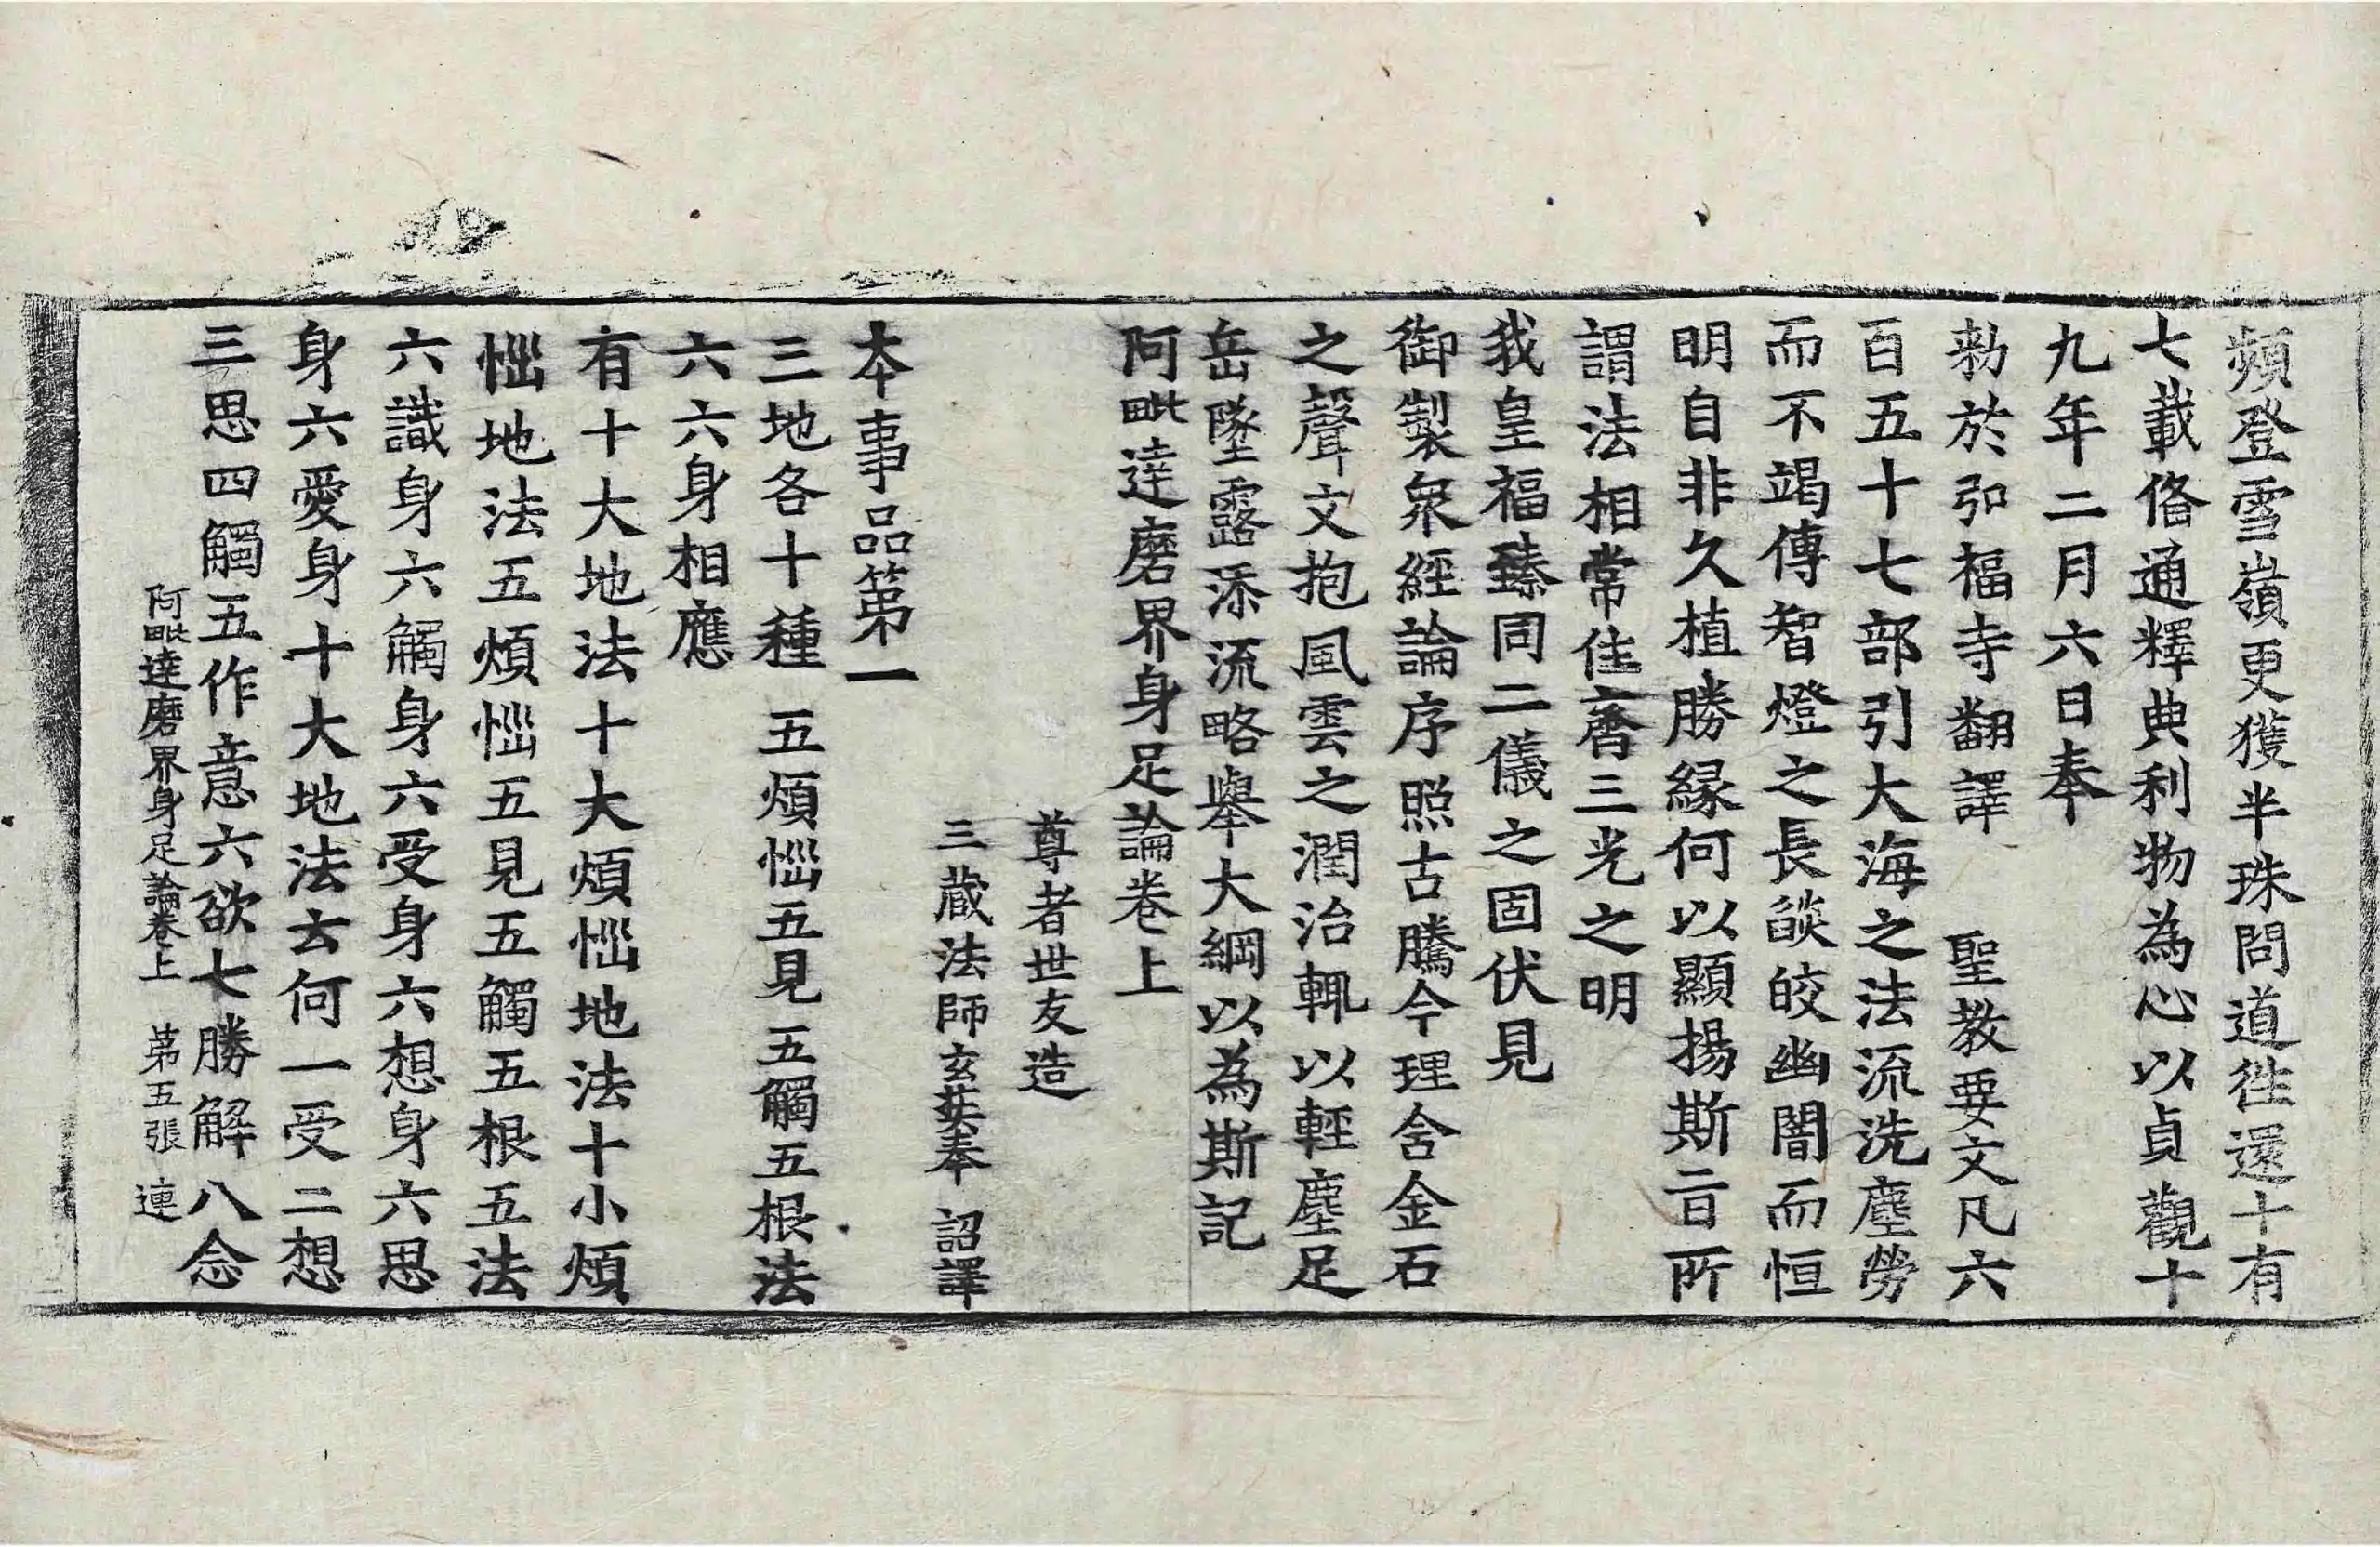 頻登雪嶺更獲半珠問道徃還十有
七載俻通釋典利物為心以貞觀十
九年二月六日奉
勑於弘福寺翻譯 聖教要文凡六
百五十七部引大海之法流洗塵勞
而不竭傳智燈之長燄皎幽闇而恒
明自非久植勝縁何以顯揚斯㫖所
謂法相常住齊三光之明
我皇福臻同二儀之固伏見
御製衆經論序照古騰今理含金石
之聲文抱風雲之潤治輒以輕塵足
岳墜露添流略舉大綱以為斯記
阿毗達磨界身足論卷上
尊者世友造
三藏法師玄奘奉 詔譯
本事品第一
三地各十種 五煩惱五見 五觸五根法
六六身相應
有十大地法十大煩惱地法十小煩
惱地法五煩惱五見五觸五根五法
六識身六觸身六受身六想身六思
身六愛身十大地法云何一受二想
三思四觸五作意六欲七勝解八念
阿毗達磨界身足論卷上 苐五張 連